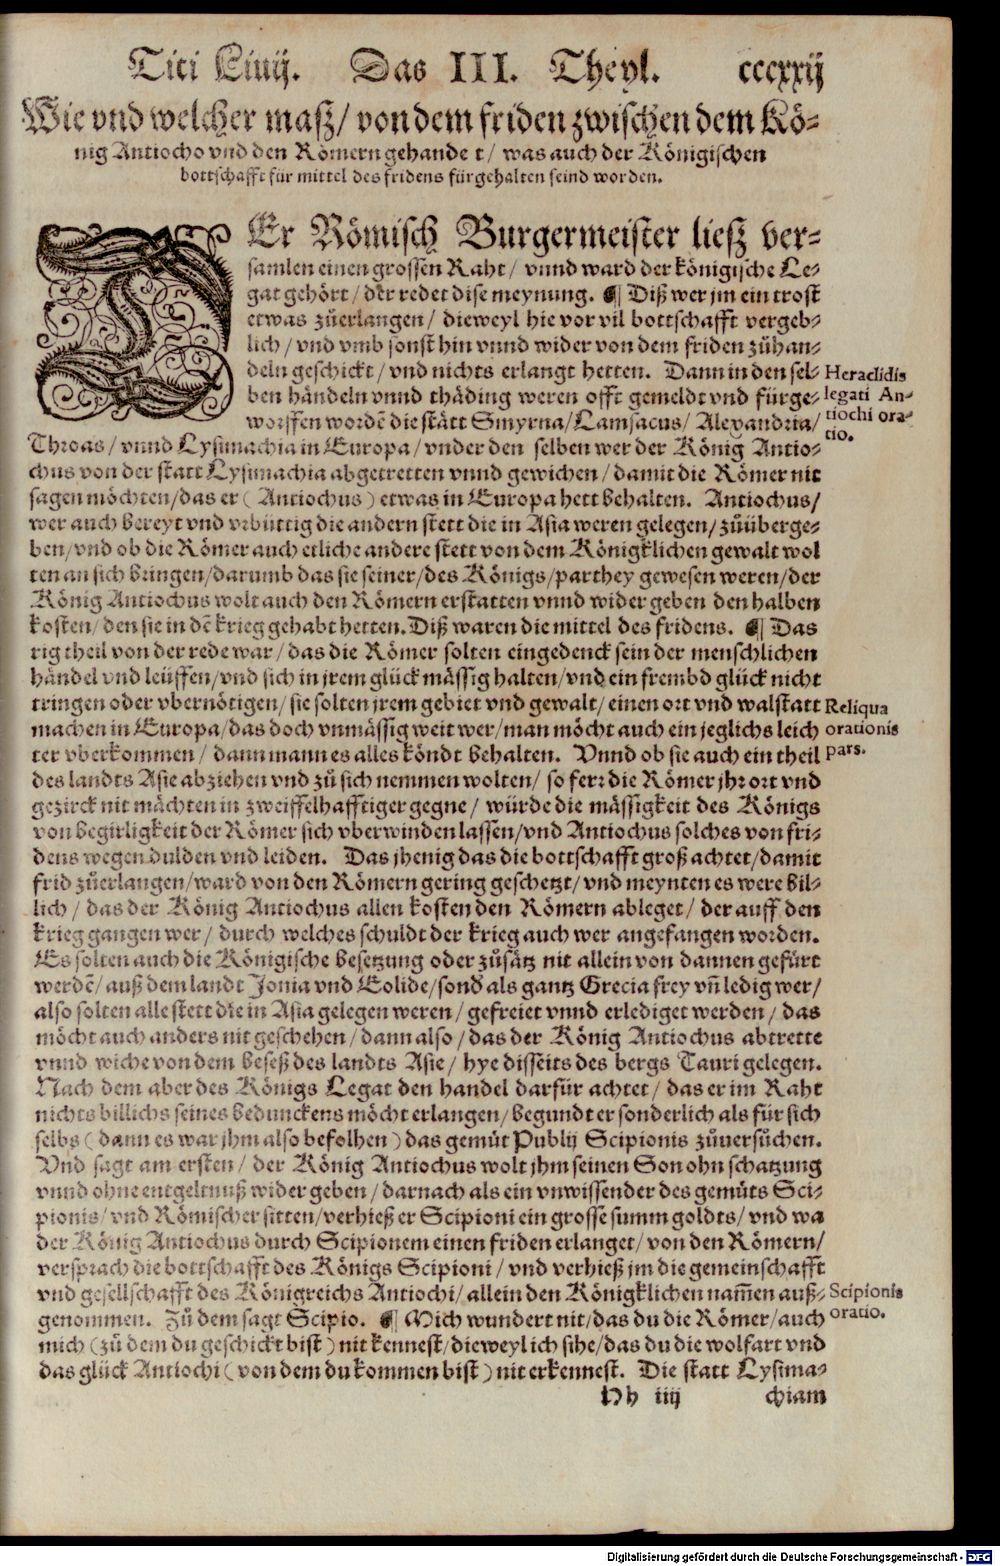 Titi Liuij. Das III. Theyl. cccxxij
Wie vnd welcher masz/ von dem friden zwischen dem Kö-
nig Antiocho vnd den Römern gehande t/ was auch der Königischen
bottschafft für mittel des fridens fürgehalten seind worden.
DEr Römisch Burgermeister liesz ver-
samlen einen grossen Raht/ vnnd ward der königische Le-
gat gehört/ der redet dise meynung. ¶ Diß wer jm ein trost
etwas zůerlangen/ dieweyl hie vor vil bottschafft vergeb-
lich/ vnd vmb sonst hin vnnd wider von dem friden zůhan-
deln geschickt/ vnd nichts erlangt hetten. Dann in den sel-
ben händeln vnnd thäding weren offt gemeldt vnd fürge-
worffen wordē die stätt Smyrna/ Lamsacus/ Alexandria/
Heraclidis
legati An-
tiochi ora-
tio.
Throas/ vnnd Lysimachia in Europa/ vnder den selben wer der König Antio-
chus von der statt Lysimachia abgetretten vnnd gewichen/ damit die Römer nit
sagen möchten/ das er (Antiochus) etwas in Europa hett behalten. Antiochus/
wer auch bereyt vnd vrbüttig die andern stett die in Asia weren gelegen/ zůüberge-
ben/ vnd ob die Römer auch etliche andere stett von dem Königklichen gewalt wol
ten an sich bringen/ darumb das sie seiner/ des Königs/ parthey gewesen weren/ der
König Antiochus wolt auch den Römern erstatten vnnd wider geben den halben
kosten/ den sie in dē krieg gehabt hetten. Diß waren die mittel des fridens. ¶ Das
rig theil von der rede war/ das die Römer solten eingedenck sein der menschlichen
händel vnd leüffen/ vnd sich in jrem glück mässig halten/ vnd ein frembd glück nicht
tringen oder vbernötigen/ sie solten jrem gebiet vnd gewalt/ einen ort vnd walstatt
machen in Europa/ das doch vnmässig weit wer/ man möcht auch ein jeglichs leich
ter vberkommen/ dann mann es alles köndt behalten. Vnnd ob sie auch ein theil
Reliqua
orationis
pars.
des landts Asie abziehen vnd zů sich nemmen wolten/ so ferr die Römer jhr ort vnd
gezirck nit mächten in zweiffelhafftiger gegne/ würde die mässigkeit des Königs
von begirligkeit der Römer sich vberwinden lassen/ vnd Antiochus solches von fri-
dens wegen dulden vnd leiden. Das jhenig das die bottschafft groß achtet/ damit
frid zůerlangen/ ward von den Römern gering geschetzt/ vnd meynten es were bil-
lich/ das der König Antiochus allen kosten den Römern ableget/ der auff den
krieg gangen wer/ durch welches schuldt der krieg auch wer angefangen worden.
Es solten auch die Königische besetzung oder zůsätz nit allein von dannen gefürt
werdē/ auß dem landt Jonia vnd Eolide/ sond' als gantz Grecia frey vn̄ ledig wer/
also solten alle stett die in Asia gelegen weren/ gefreiet vnnd erlediget werden/ das
möcht auch anders nit geschehen/ dann also/ das der König Antiochus abtrette
vnnd wiche von dem beseß des landts Asie/ hye disseits des bergs Tauri gelegen.
Nach dem aber des Königs Legat den handel darfür achtet/ das er im Raht
nichts billichs seines bedunckens möcht erlangen/ begundt er sonderlich als für sich
selbs (dann es war jhm also befolhen) das gemüt Publij Scipionis zůuersůchen.
Vnd sagt am ersten/ der König Antiochus wolt jhm seinen Son ohn schatzung
vnnd ohne entgeltnuß wider geben/ darnach als ein vnwissender des gemüts Sci-
pionis/ vnd Römischer sitten/ verhieß er Scipioni ein grosse summ goldts/ vnd wa
der König Antiochus durch Scipionem einen friden erlanget/ von den Römern/
versprach die bottschafft des Königs Scipioni/ vnd verhieß jm die gemeinschafft
vnd gesellschafft des Königreichs Antiochi/ allein den Königklichen nam̄en auß-
genommen. Zů dem sagt Scipio. ¶ Mich wundert nit/ das du die Römer/ auch
Scipionis
oratio.
mich (zů dem du geschickt bist) nit kennest/ dieweyl ich sihe/ das du die wolfart vnd
das glück Antiochi (von dem du kommen bist) nit erkennest. Die statt Lysima-
Hh iiij chiam
Digitalisierung gefördert durch die Deutsche Forschungsgemeinschaft - DFG